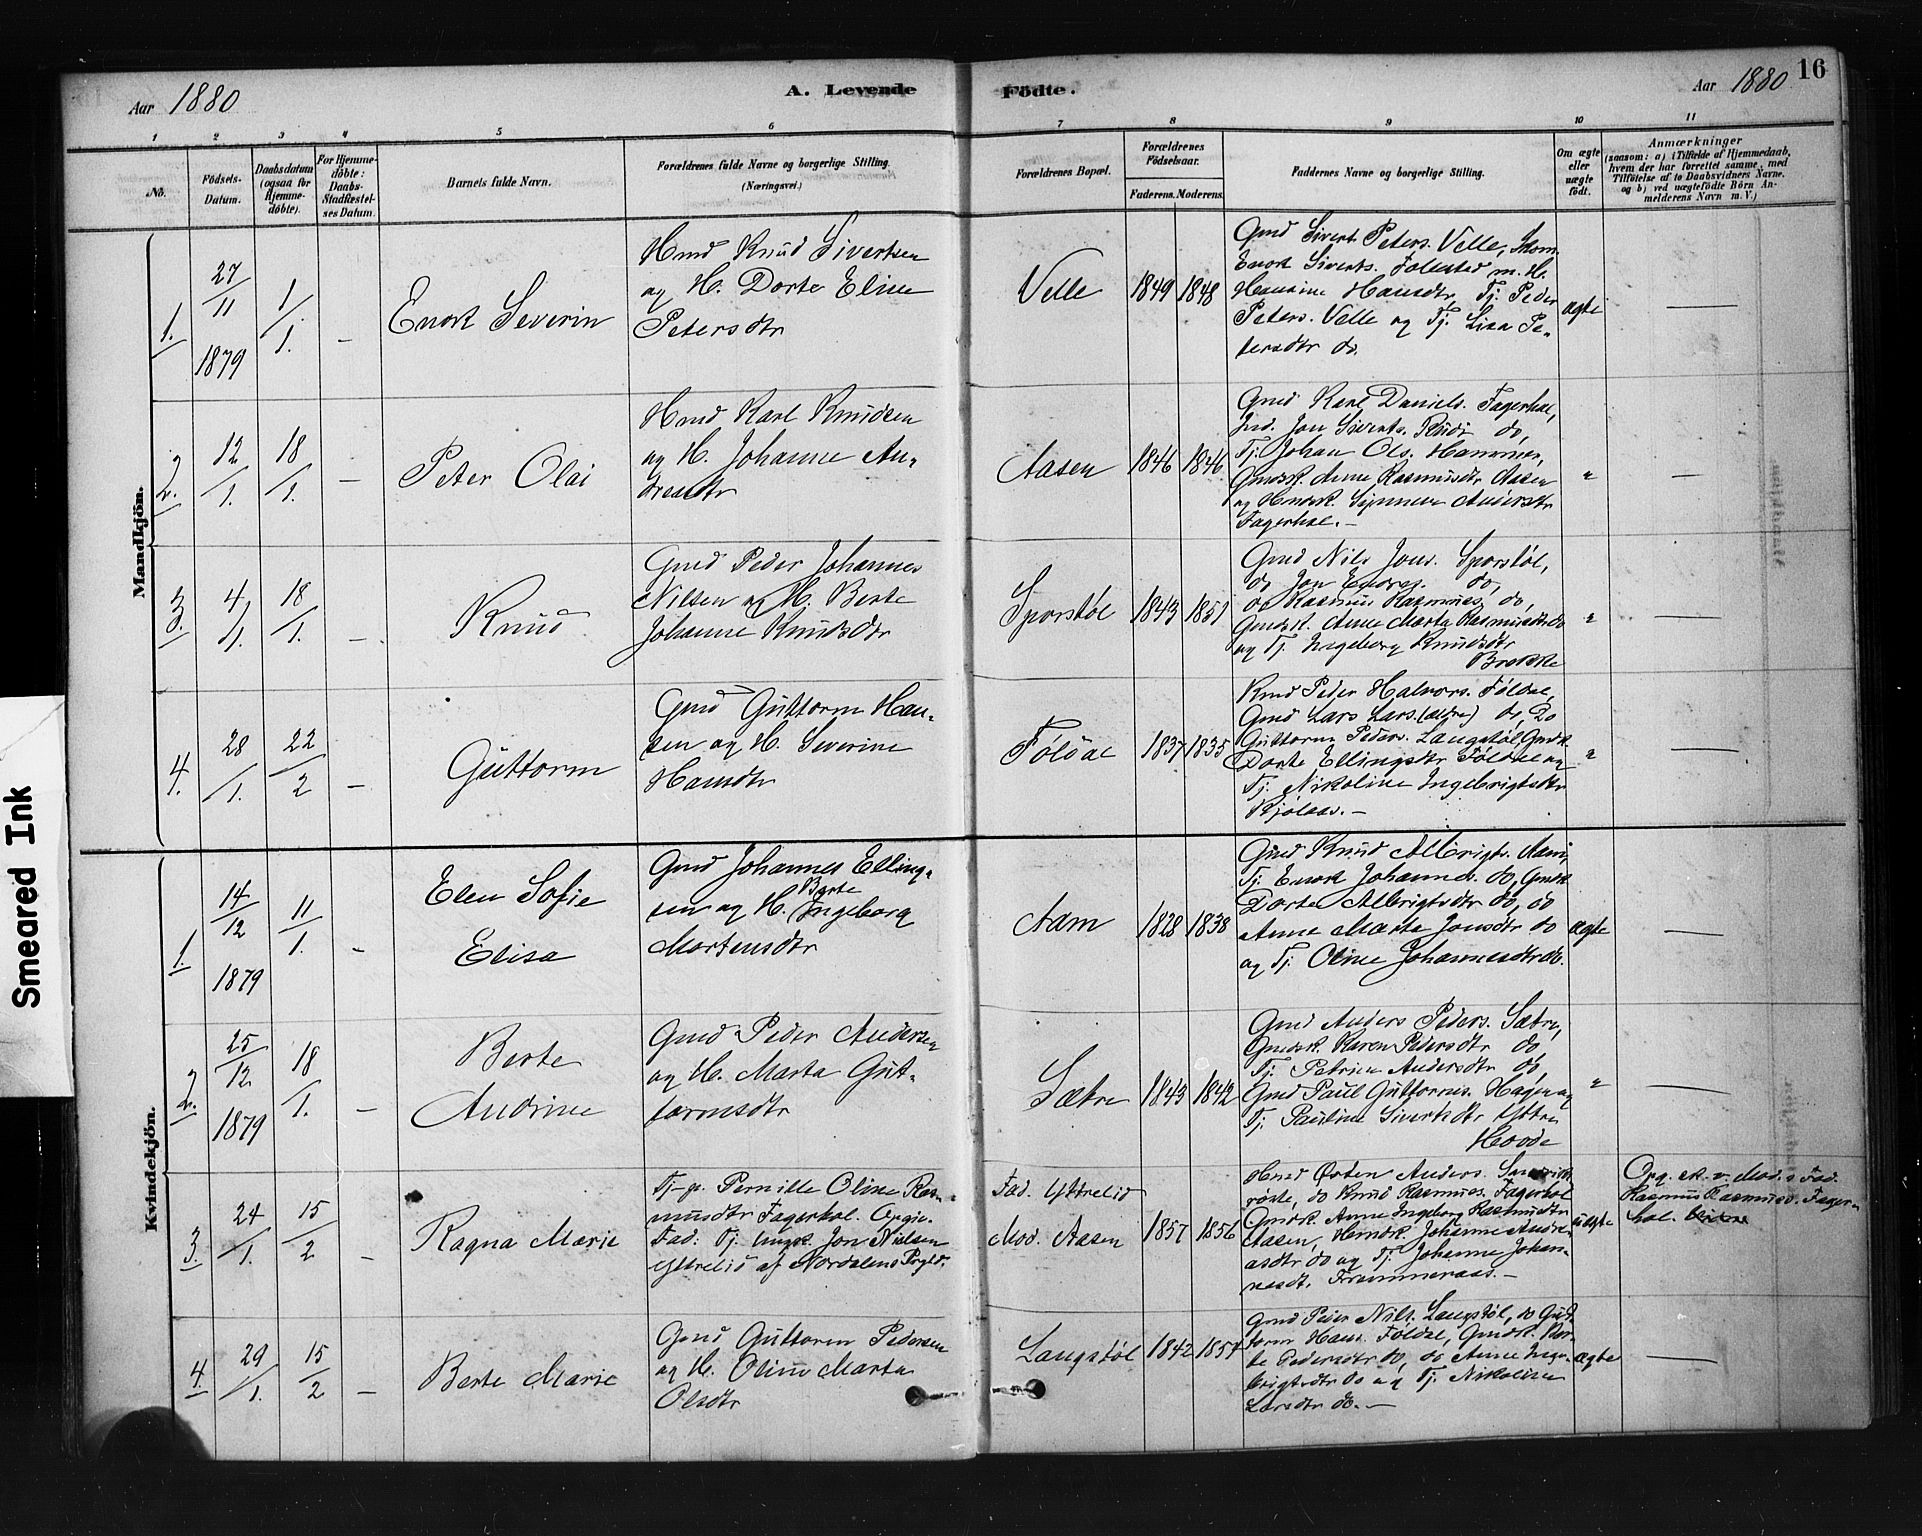 Aar 1880
A. Levende
Födte.
Aar 1880
16
1 2 3 4 5 6 7 8 9 10 11
No.
Födsels-
Datum.
Daabsdatum
(ogsaa for
Hjemme-
döbte).
For Hjemme-
döbte:
Daabs-
Stadfæstel-
ses Datum.
Barnets fulde Navn.
Forældrenes fulde Navne og borgerlige Stilling.
(Næringsvei.)
Forældrenes Bopæl.
Forældrenes
Födselsaar.
Faderens. Moderens.
Faddernes Navne og borgerlige Stilling.
Om ægte
eller
uægte
født.
Anmærkninger
(saasom: a) i Tilfælde af Hjemmedaab,
hvem der har forrettet samme, med
Tilföielse af to Daabsvidners Navne.
og b) ved uægtefödte Börn An-
melderens Navn m. V.)
Mandkjön.
1.
27/11
1879
1/1.
–
Enok Severin
Hmd Knud Sivertsen
og H. Dorte Eline
Petersdtr
Velle
1849 1848
Gmd Sivert Peters. Velle,
Enok Siverts. Folestad m. H.
Hansine Hansdtr, Tj. Peder
Peters. Velle og Tj. Lisa Pe-
tersdtr do.
ægte
—
2.
12/1.
18/1.
–
Peter Olai
Hmd Karl Knudsen
og H. Johanne An-
dreasdtr
Aasen
1846 1846
Gmd Karl Daniels. Fagerhol,
Jon Siverts. do,
Tj. Johan Ols. Hammer,
Gmdsk. Anne Rasmusdtr Aasen
og Hmdsk. Andersdtr
Fagerhol. –
"
—
3.
4/1.
18/1.
–
Knud
Gmd Peder Johannes
Nilsen og H. Berte
Johanne Knudsdtr
Sporstøl
1843 1851
Gmd Nils Jons. Sporstøl,
do Jon Endres. do,
do Rasmus Rasmuss. do,
Gmdsk. Anne Marta Rasmusdtr do
og Tj. Ingeborg Knudsdtr
Brekke
"
—
4.
28/1.
22/2
–
Guttorm
Gmd Guttorm Han-
sen og H. Severine
Hansdtr
Føldal
1837 1835
Peder Halvors. Føldal,
Gmd Lars Lars. (ældre) do, Do
Guttorm Peders. Langstøl, Gmdsk.
Dorte Ellingsdtr Føldal og
Tj. Nikoline Ingebrigtsdtr
Kjølaas. –
"
—
Kvindekjön.
1.
14/12
1879
11/1.
–
Elen Sofie
Elisa
Gmd Johannes Elling-
Berte
sen og H. Ingeborg
Mortensdtr
Aam
1828 1838
Gmd Knud Albrigts. Aam,
Tj. Enok Johannes. do, Gmdsk.
Dorte Albrigtsdtr do, do
Anne Marta Jonsdtr do
og Tj. Oline Johannesdtr do.
ægte
—
2.
25/12
1879
18/1.
–
Berte
Andrine
Gmd Peder Andersen
og H. Marta Gut-
tormsdtr
Sætre
1843 1842
Gmd Anders Peders. Sætre,
Gmdsk. Karen Pedersdtr do,
Tj. Petrine Andersdtr do,
Gmd Paul Guttorms. Hagen og
Tj. Pauline Sivertsdtr Ytre
Hovde
"
—
3.
24/1.
15/2
–
Ragna Marie
Tj-p. Pernille Oline Ras-
musdtr Fagerhol. Opgiv.
Fad: Tj. Ungk. Jon Nielsen
Yttrelid af Nordalens Prgld.
Fad. Yttrelid
Mod. Aasen
1857 1856
Hmd Østen Anders.
do Knud Rasmuss. Fagerhol
Gmdsk. Anne Ingeborg Rasmusdtr
Aasen, Hmdsk. Johanne Andre-
asdtr do og Tj. Johanne Johan-
nesdt. Frammeraas. –
uægte
Opg. v. Mod.s Fad.
Rasmus Rasmuss. Fager-
hol.
4.
29/1.
15/2
–
Berte Marie
Gmd Guttorm Pedersen
og H. Oline Marta
Olsdtr
Langstøl
1842 1857
Gmd Peder Nils. Langstøl, do Gut-
torm Hans. Føldal, Gmdsk. Ber-
te Pedersdtr do, do Anne Inge-
brigtsdtr do og Tj. Nikoline
Larsdtr do. –
ægte
—
Smeared Ink